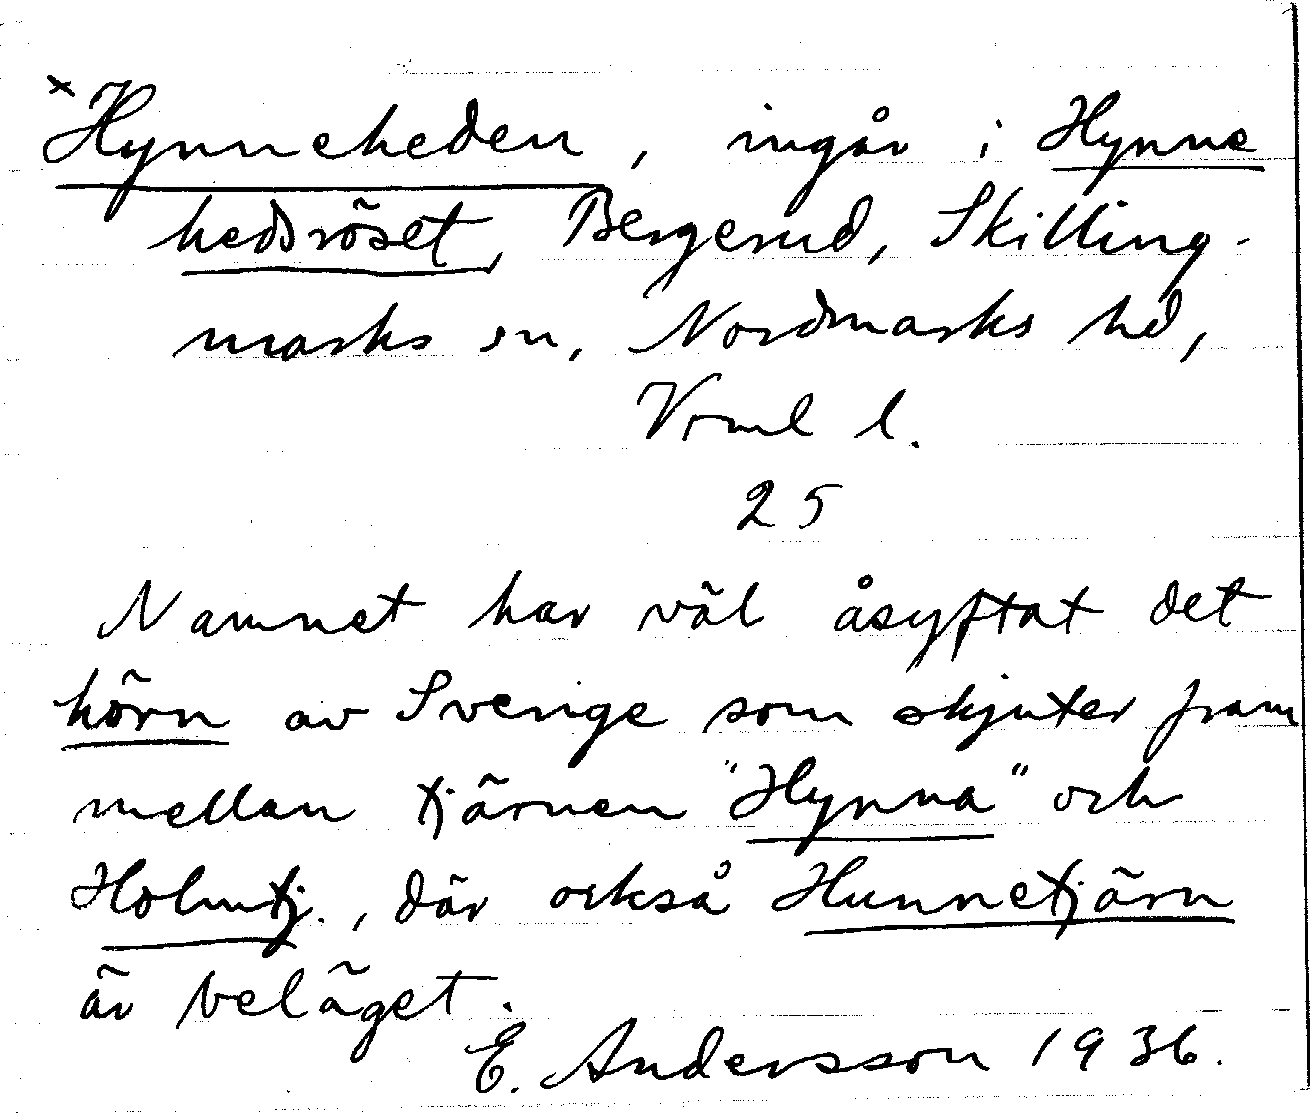 ×Hynneheden, ingår i Hynne
hedsröset, Bergerud, Skilling-
marks sn, Nordmarks hd,
Vrml l.
25
Namnet har väl åsyftat det
hörn av Sverige som skjuter fram
mellan tjärnen "Hynna" och
Holmtj., där också Hunnetjärn
är beläget.
E. Andersson 1936.